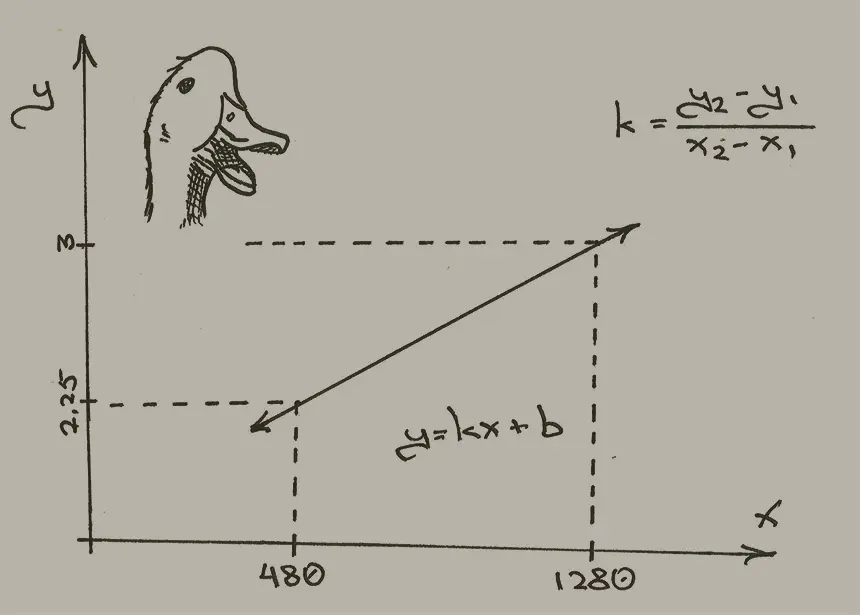 y
k = y₂ - y₁ / x₂ - x₁
3
2,25
y = kx + b
x
480
1280